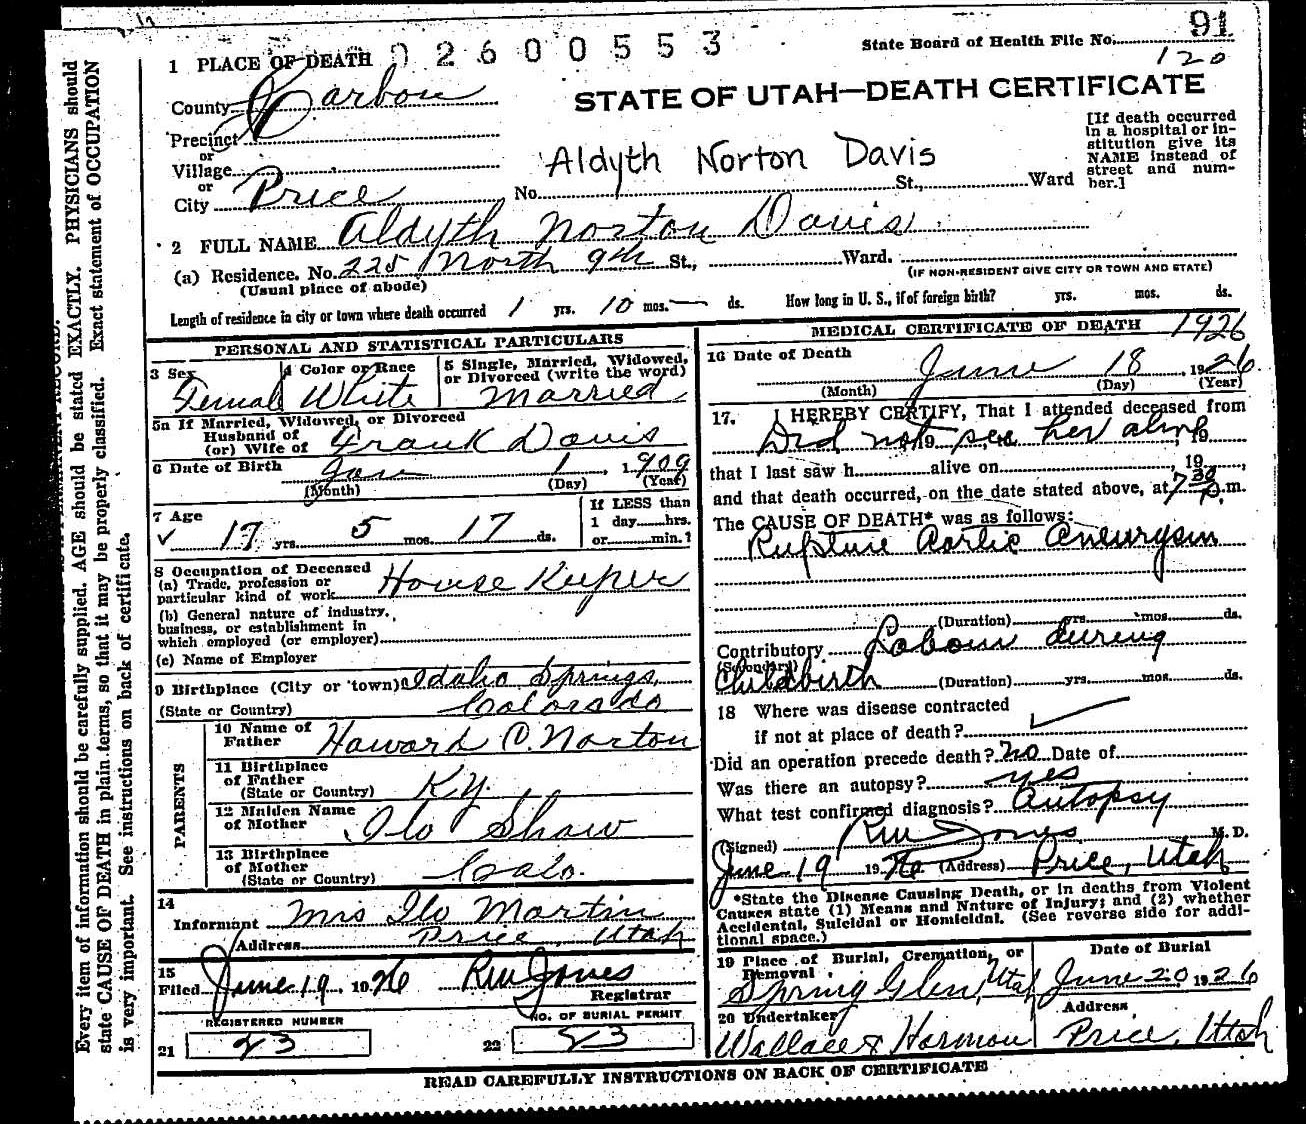 91
State Board of Health File No.
120
1 PLACE OF DEATH 02600553
STATE OF UTAH—DEATH CERTIFICATE
County Carbon
Precinct
or
Village
or
City Price
Aldyth Norton Davis
No. St., Ward
[If death occurred
in a hospital or in-
stitution give its
NAME instead of
street and num-
ber.]
2 FULL NAME Aldyth Norton Davis
(a) Residence. No. 225 North 9th St., Ward.
(Usual place of abode)
(IF NON-RESIDENT GIVE CITY OR TOWN AND STATE)
Length of residence in city or town where death occurred 1 yrs. 10 mos. — ds. How long in U. S., if of foreign birth? yrs. mos. ds.
PERSONAL AND STATISTICAL PARTICULARS
3 Sex
Female
4 Color or Race
White
5 Single, Married, Widowed,
or Divorced (write the word)
Married
5a If Married, Widowed, or Divorced
Husband of
(or) Wife of Frank Davis
6 Date of Birth Jan 1, 1909
(Month) (Day) (Year)
7 Age
17 yrs. 5 mos. 17 ds.
If LESS than
1 day hrs.
or min.?
8 Occupation of Deceased
(a) Trade, profession or
particular kind of work House Keeper
(b) General nature of industry,
business, or establishment in
which employed (or employer)
(c) Name of Employer
9 Birthplace (City or town) Idaho Springs,
(State or Country) Colorado
PARENTS
10 Name of
Father Howard C. Norton
11 Birthplace
of Father
(State or Country) Ky.
12 Maiden Name
of Mother Ilo Shaw
13 Birthplace
of Mother
(State or Country) Colo.
14
Informant Mrs Ilo Martin
Address Price, Utah
15
Filed June 19, 1926 RW Jones
Registrar
REGISTERED NUMBER
21 23
NO. OF BURIAL PERMIT
22 23
MEDICAL CERTIFICATE OF DEATH 1926
16 Date of Death
June 18, 1926.
(Month) (Day) (Year)
17. I HEREBY CERTIFY, That I attended deceased from
Did not see her alive 19 19
that I last saw h alive on , 19 ,
and that death occurred, on the date stated above, at 7 30 p.m.
The CAUSE OF DEATH* was as follows:
Rupture Aortic Aneurysm
(Duration) yrs. mos. ds.
Contributory Labour dureng
(Secondary)
Childbirth (Duration) yrs. mos. ds.
18 Where was disease contracted
if not at place of death?
Did an operation precede death? no Date of
Was there an autopsy? yes
What test confirmed diagnosis? Autopsy
(Signed) RW Jones M. D.
June 19 1926 (Address) Price, Utah
*State the Disease Causing Death, or in deaths from Violent
Causes state (1) Means and Nature of Injury; and (2) whether
Accidental, Suicidal or Homicidal. (See reverse side for addi-
tional space.)
19 Place of Burial, Cremation, or
Removal
Spring Glen, Utah
Date of Burial
June 20 1926
20 Undertaker
Wallace & Harmon
Address
Price, Utah
READ CAREFULLY INSTRUCTIONS ON BACK OF CERTIFICATE
PERMANENT RECORD.
Every item of information should be carefully supplied. AGE should be stated EXACTLY. PHYSICIANS should
state CAUSE OF DEATH in plain terms, so that it may be properly classified. Exact statement of OCCUPATION
is very important. See instructions on back of certificate.